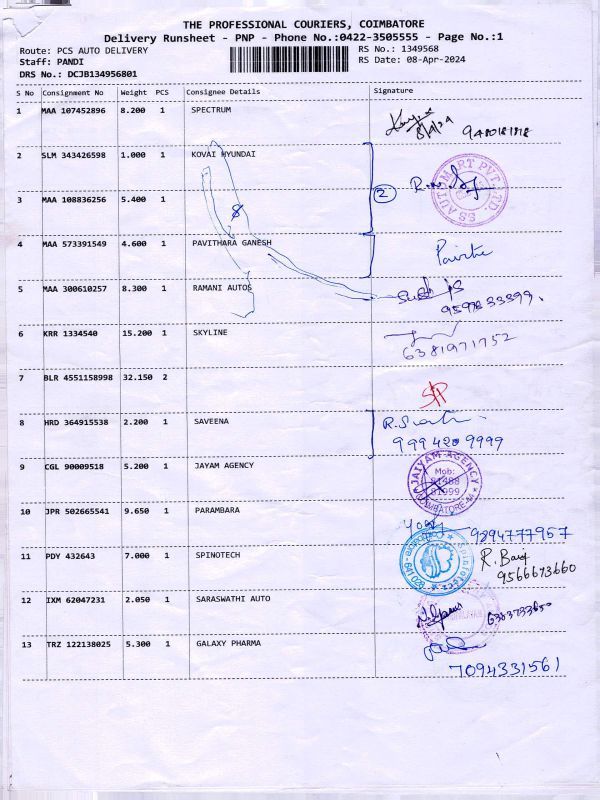 THE PROFESSIONAL COURIERS, COIMBATORE
Delivery Runsheet - PNP - Phone No.:0422-3505555 - Page No.:1
Route: PCS AUTO DELIVERY
RS No.: 1349568
Staff: PANDI
RS Date: 08-Apr-2024
DRS No.: DCJB134956801
S No Consignment No Weight PCS Consignee Details Signature
1 MAA 107452896 8.200 1 SPECTRUM
8/4/24
2 SLM 343426598 1.000 1 KOVAI HYUNDAI
2
SS AUTOMART PVT. LTD.
3 MAA 108836256 5.400 1
4 MAA 573391549 4.600 1 PAVITHARA GANESH
5 MAA 300610257 8.300 1 RAMANI AUTOS
6 KRR 1334540 15.200 1 SKYLINE
6381971752
7 BLR 4551158998 32.150 2
8 HRD 364915538 2.200 1 SAVEENA
999 420 9999
9 CGL 90009518 5.200 1 JAYAM AGENCY
JAIYAM AGENCY
Mob:
10 JPR 502665541 9.650 1 PARAMBARA
9894777957
11 PDY 432643 7.000 1 SPINOTECH
9566673660
12 IXM 62047231 2.050 1 SARASWATHI AUTO
13 TRZ 122138025 5.300 1 GALAXY PHARMA
7094331561